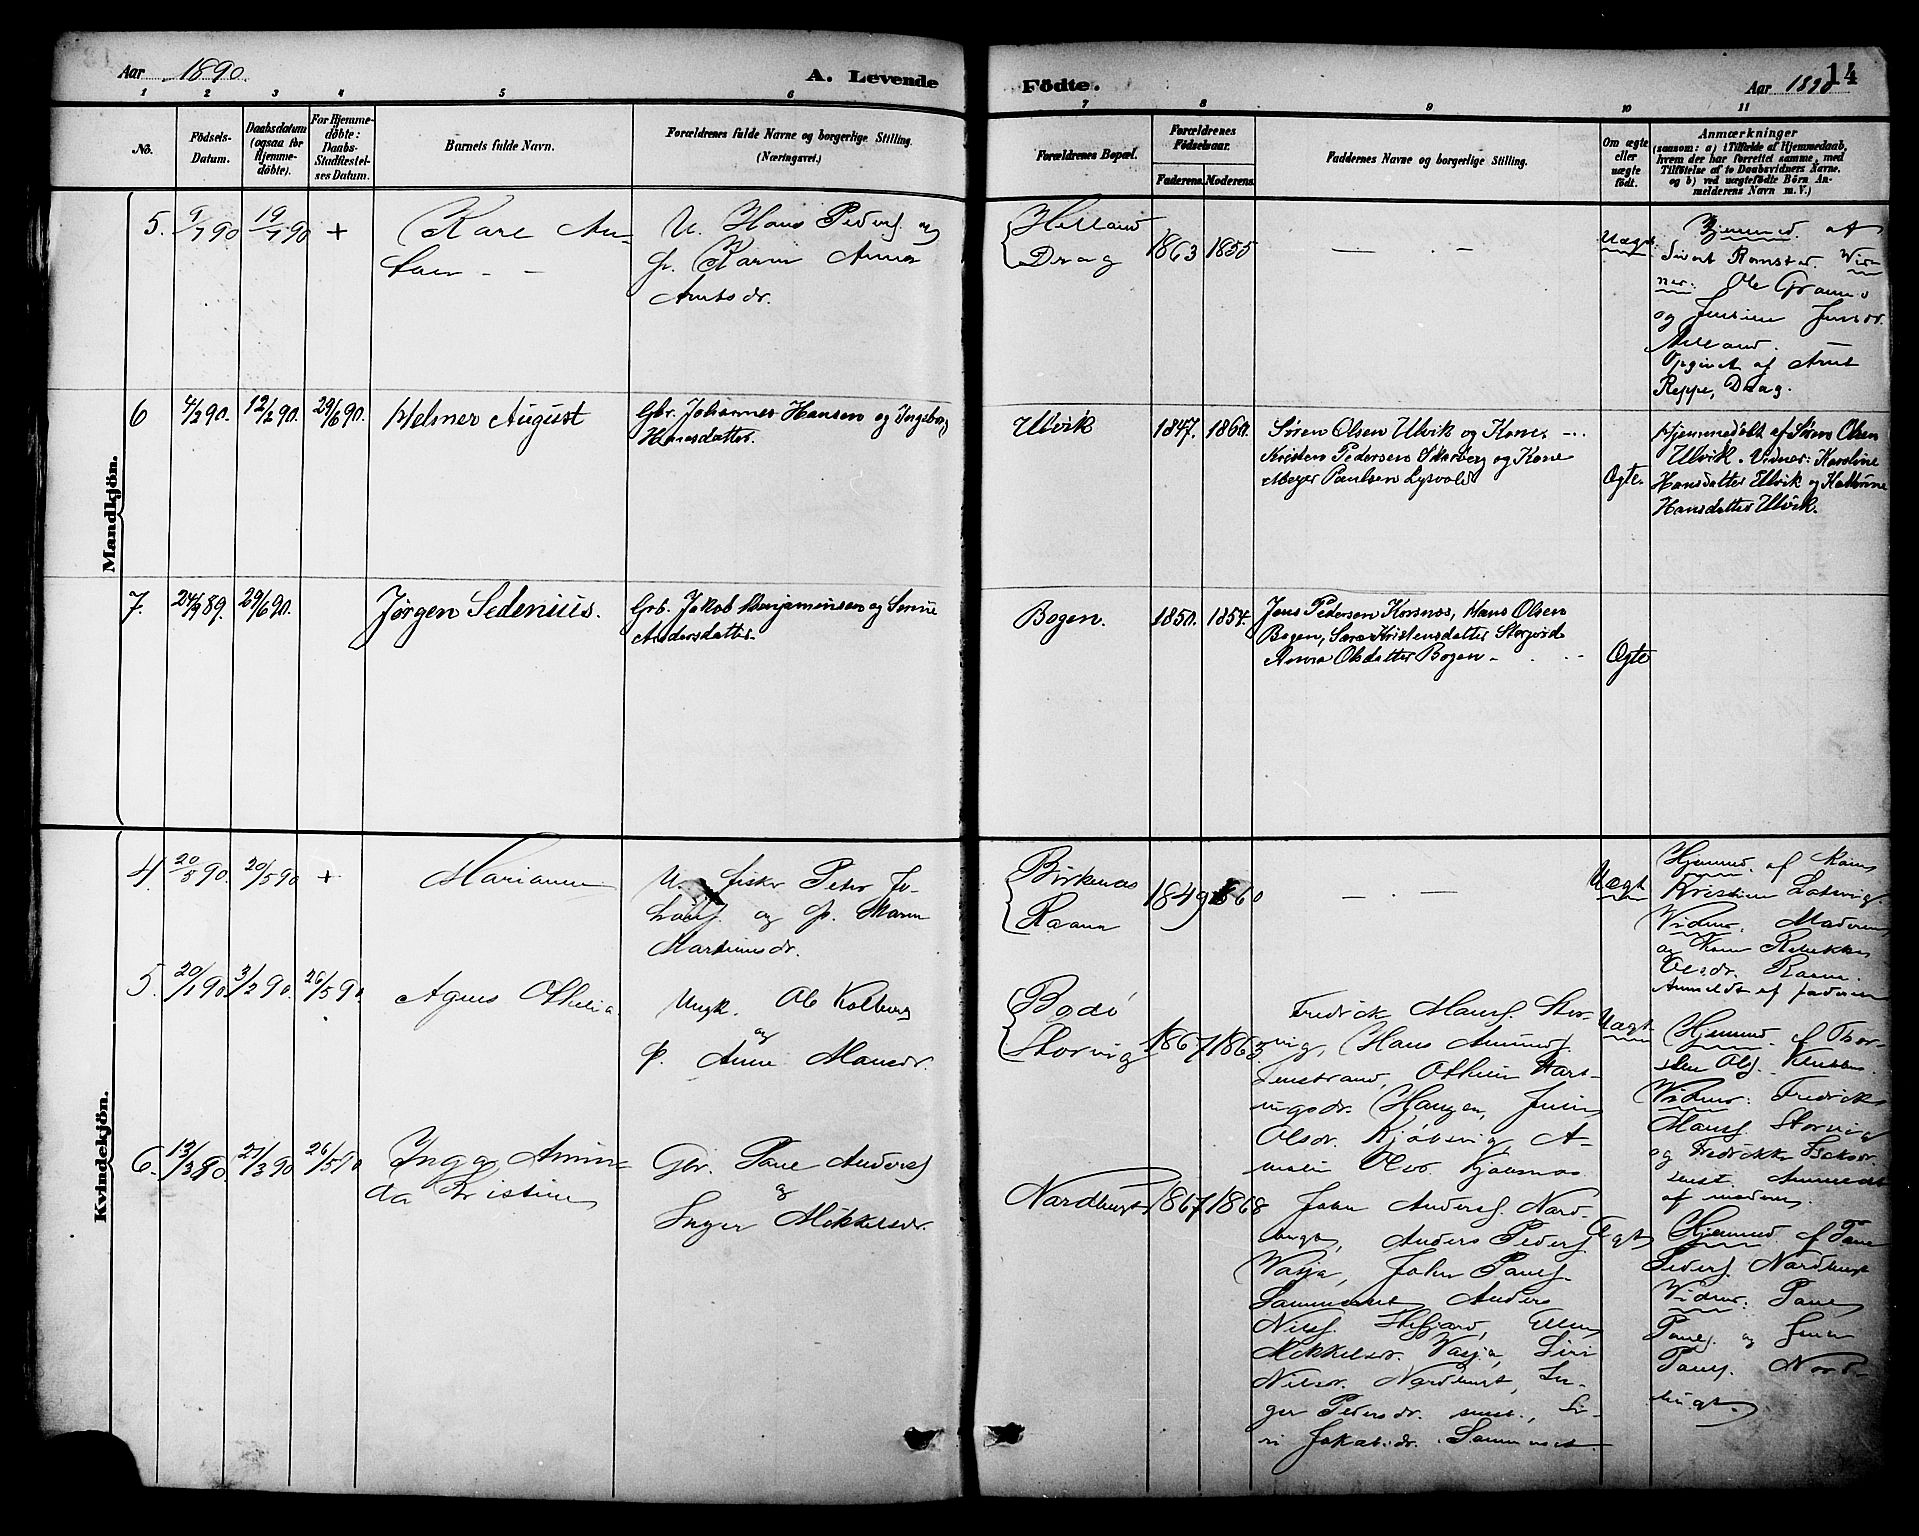 Aar 1890.
A. Levende
Födte.
Aar 1890
14
1 2 3 4 5 6 7 8 9 10 11
No.
Födsels-
Datum.
Daabsdatum
(ogsaa for
Hjemme-
döbte).
For Hjemme-
döbte:
Daabs-
Stadfæstel-
ses Datum.
Barnets fulde Navn.
Forældrenes fulde Navne og borgerlige Stilling.
(Næringsvei.)
Forældrenes Bopæl.
Forældrenes
Födselsaar.
Faderens.
Moderens.
Faddernes Navne og borgerlige Stilling.
Om ægte
eller
uægte
født.
Anmærkninger
(saasom: a) i Tilfælde af Hjemmedaab,
hvem der har forrettet samme, med
Tilföielse af to Daabsvidners Navne,
og b) ved uægtefödte Börn An-
melderens Navn m. V.)
Mandkjön.
5.
9/7 90
19/7 90
+
Karl An-
ton - -
U. Hans Peders. og
p. Karen Anna
Antsdr.
Helland
Drag
1863
1855
Uægt.
Hjemmed. af
Sivert Ramstad. Vid-
ner: Ole
og Jensdr.
Helland.
Opgivet af Arnt
Reppe, Drag.
6
4/2 90.
12/2 90.
29/6 90.
Helmer August
Gbr. Johannes Hansen og Ingeborg
Hansdatter.
Ulvik
1847.
1860.
Søren Olsen Ulvik og Kone -..
Kristen Pedersen Skarberg og Kone
Meyer Paulsen Lysvold
Ægte.
Hjemmedøbt af Søren Olsen
Ulvik. Vidner: Karoline
Hansdatter Ulvik og Kathrine
Hansdatter Ulvik.
7.
24/9 89.
29/6 90.
Jørgen Sedenius.
Grb. Jakob Benjaminsen og
Andersdatter.
Bogen.
1850.
1854.
Jens Pedersen Korsnes, Hans Olsen
Bogen, Sara Kristensdatter Storjord
Anna Olsdatter Bogen -
Ægte
Kvindekjön.
4.
20/5 90.
20/5 90
+
Marianna
U. fisker Peter
og p. Maren
Martinusdr.
Birkenæs
Raana
1849
1860
Uægt
Hjemmed. af Kone
Kristine
Vidner: Moderen
og Kone Rebekka
Olsdr. Raana.
Anmeldt af faderen
5.
20/1 90
3/2 90.
26/5 90.
Agnes Othelia.
Ungk. Ole Kolberg
og
p. Anne Mansdr.
Bodö
Storvig
1867
1863
Fredrik Mans. Stor-
vig, Hans Amunds.
Othelie Hart-
vigsdr. Haugen,
Olsdr. Kjöbsvig, A-
malie
Uægt
Hjemmed. af Thor-
sten Ols.
Vidner: Fredrik
Mans. Storvig
og Fredrikke
Anmeldt
af moderen.
6.
13/3 90.
21/3 90
26/5 90
Inga Amin-
da Kristine
Gbr. Paul Anders.
og
Inger Mikkelsdr.
Nordbugt
1867
1868
John Anders. Nord-
bugt, Anders Peders.
Vasja, John Pauls.
Sammeneset Anders
Nils. Stefjord, Ellen
Mikkelsdr. Vasja, Siri
Nilsdr. Nordbugt, In-
ger Pedersdr. smst., Si-
ri Jakobsdr. Sammeneset
Ægt
Hjemmed. af Paul
Peders. Nordbugt
Vidner: Paul
Pauls. og
Pauls. Nord-
bugt.